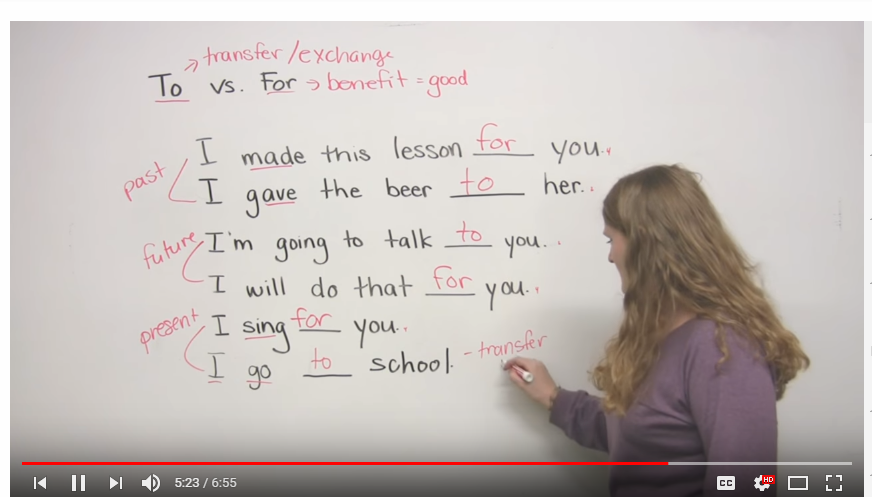 → transfer/exchange
To vs. For → benefit = good
past
I made this lesson for you.
I gave the beer to her.
future
I'm going to talk to you.
I will do that for you.
present
I sing for you.
I go to school. - transfer
5:23 / 6:55
CC
HD